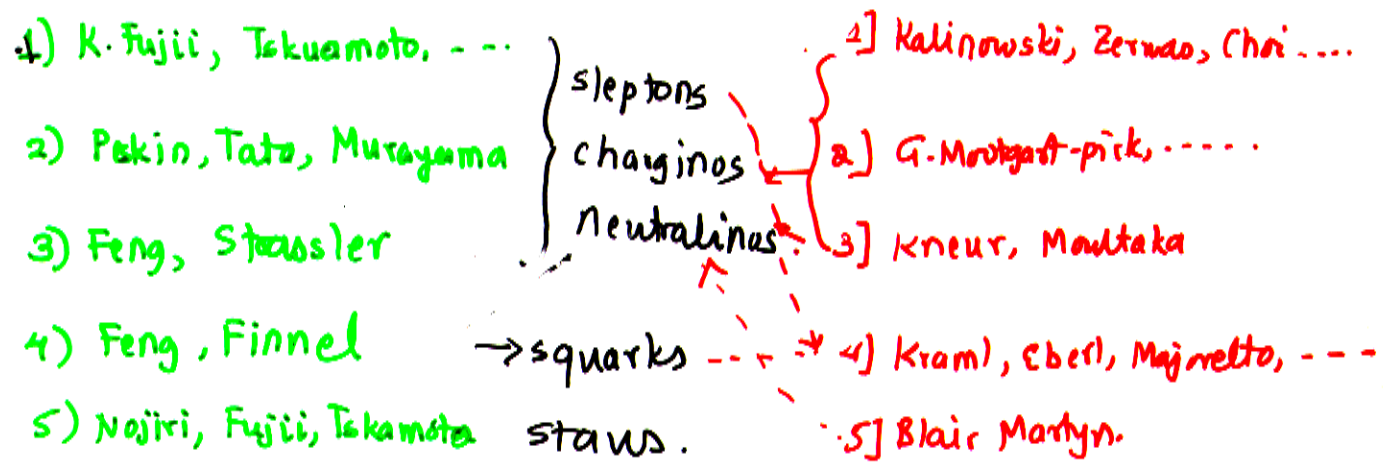 1) K. Fujii, Tskuamoto, - - -
2) Pekin, Tata, Murayama
3) Feng, Strassler
4) Feng, Finnel
5) Nojiri, Fujii, Tskamoto
sleptons
charginos
neutralinos
→ squarks
staus.
1] Kalinowski, Zerwas, Choi ....
2] G. Moortgart-pick, .....
3] Kneur, Moultaka
4] Kraml, Eberl, Majorelto, - - -
5] Blair Martyn.